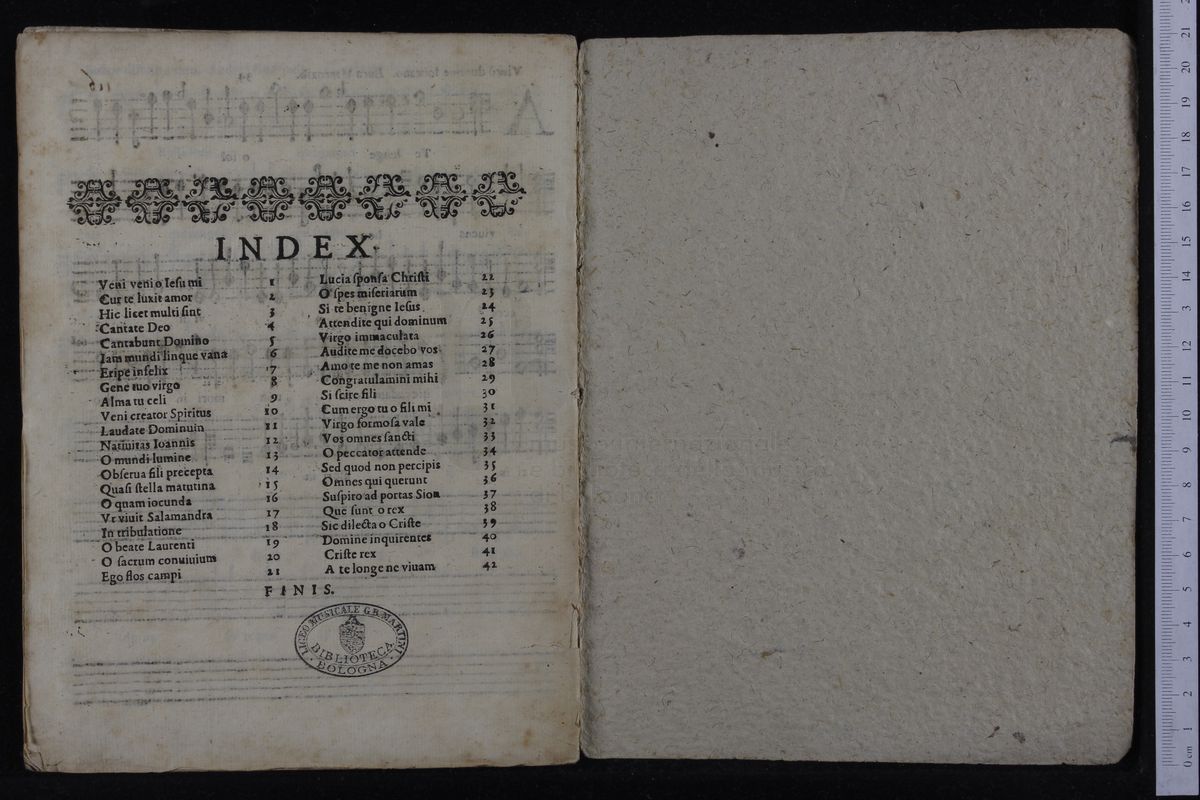 INDEX
Veni veni o Iesu mi 1
Cur te luxit amor 2
Hic licet multi ſint 3
Cantate Deo 4
Cantabunt Domino 5
Iam mundi linque vana 6
Eripe infelix 7
Gene tuo virgo 8
Alma tu celi 9
Veni creator Spiritus 10
Laudate Dominum 11
Natiuitas Ioannis 12
O mundi lumine 13
Obſerua fili precepta 14
Quaſi ſtella matutina 15
O quam iocunda 16
Vt viuit Salamandra 17
In tribulatione 18
O beate Laurenti 19
O ſacrum conuiuium 20
Ego flos campi 21
Lucia ſponſa Chriſti 22
O ſpes miſeriarum 23
Si te benigne Ieſus 24
Attendite qui dominum 25
Virgo immaculata 26
Audite me docebo vos 27
Amo te me non amas 28
Congratulamini mihi 29
Si ſcire fili 30
Cum ergo tu o fili mi 31
Virgo formoſa vale 32
Vos omnes ſancti 33
O peccator attende 34
Sed quod non percipis 35
Omnes qui querunt 36
Suſpiro ad portas Sion 37
Que ſunt o rex 38
Sic dilecta o Criſte 39
Domine inquirentes 40
Criſte rex 41
A te longe ne viuam 42
FINIS.
LICEO MUSICALE G.B. MARTINI
BIBLIOTECA
BOLOGNA